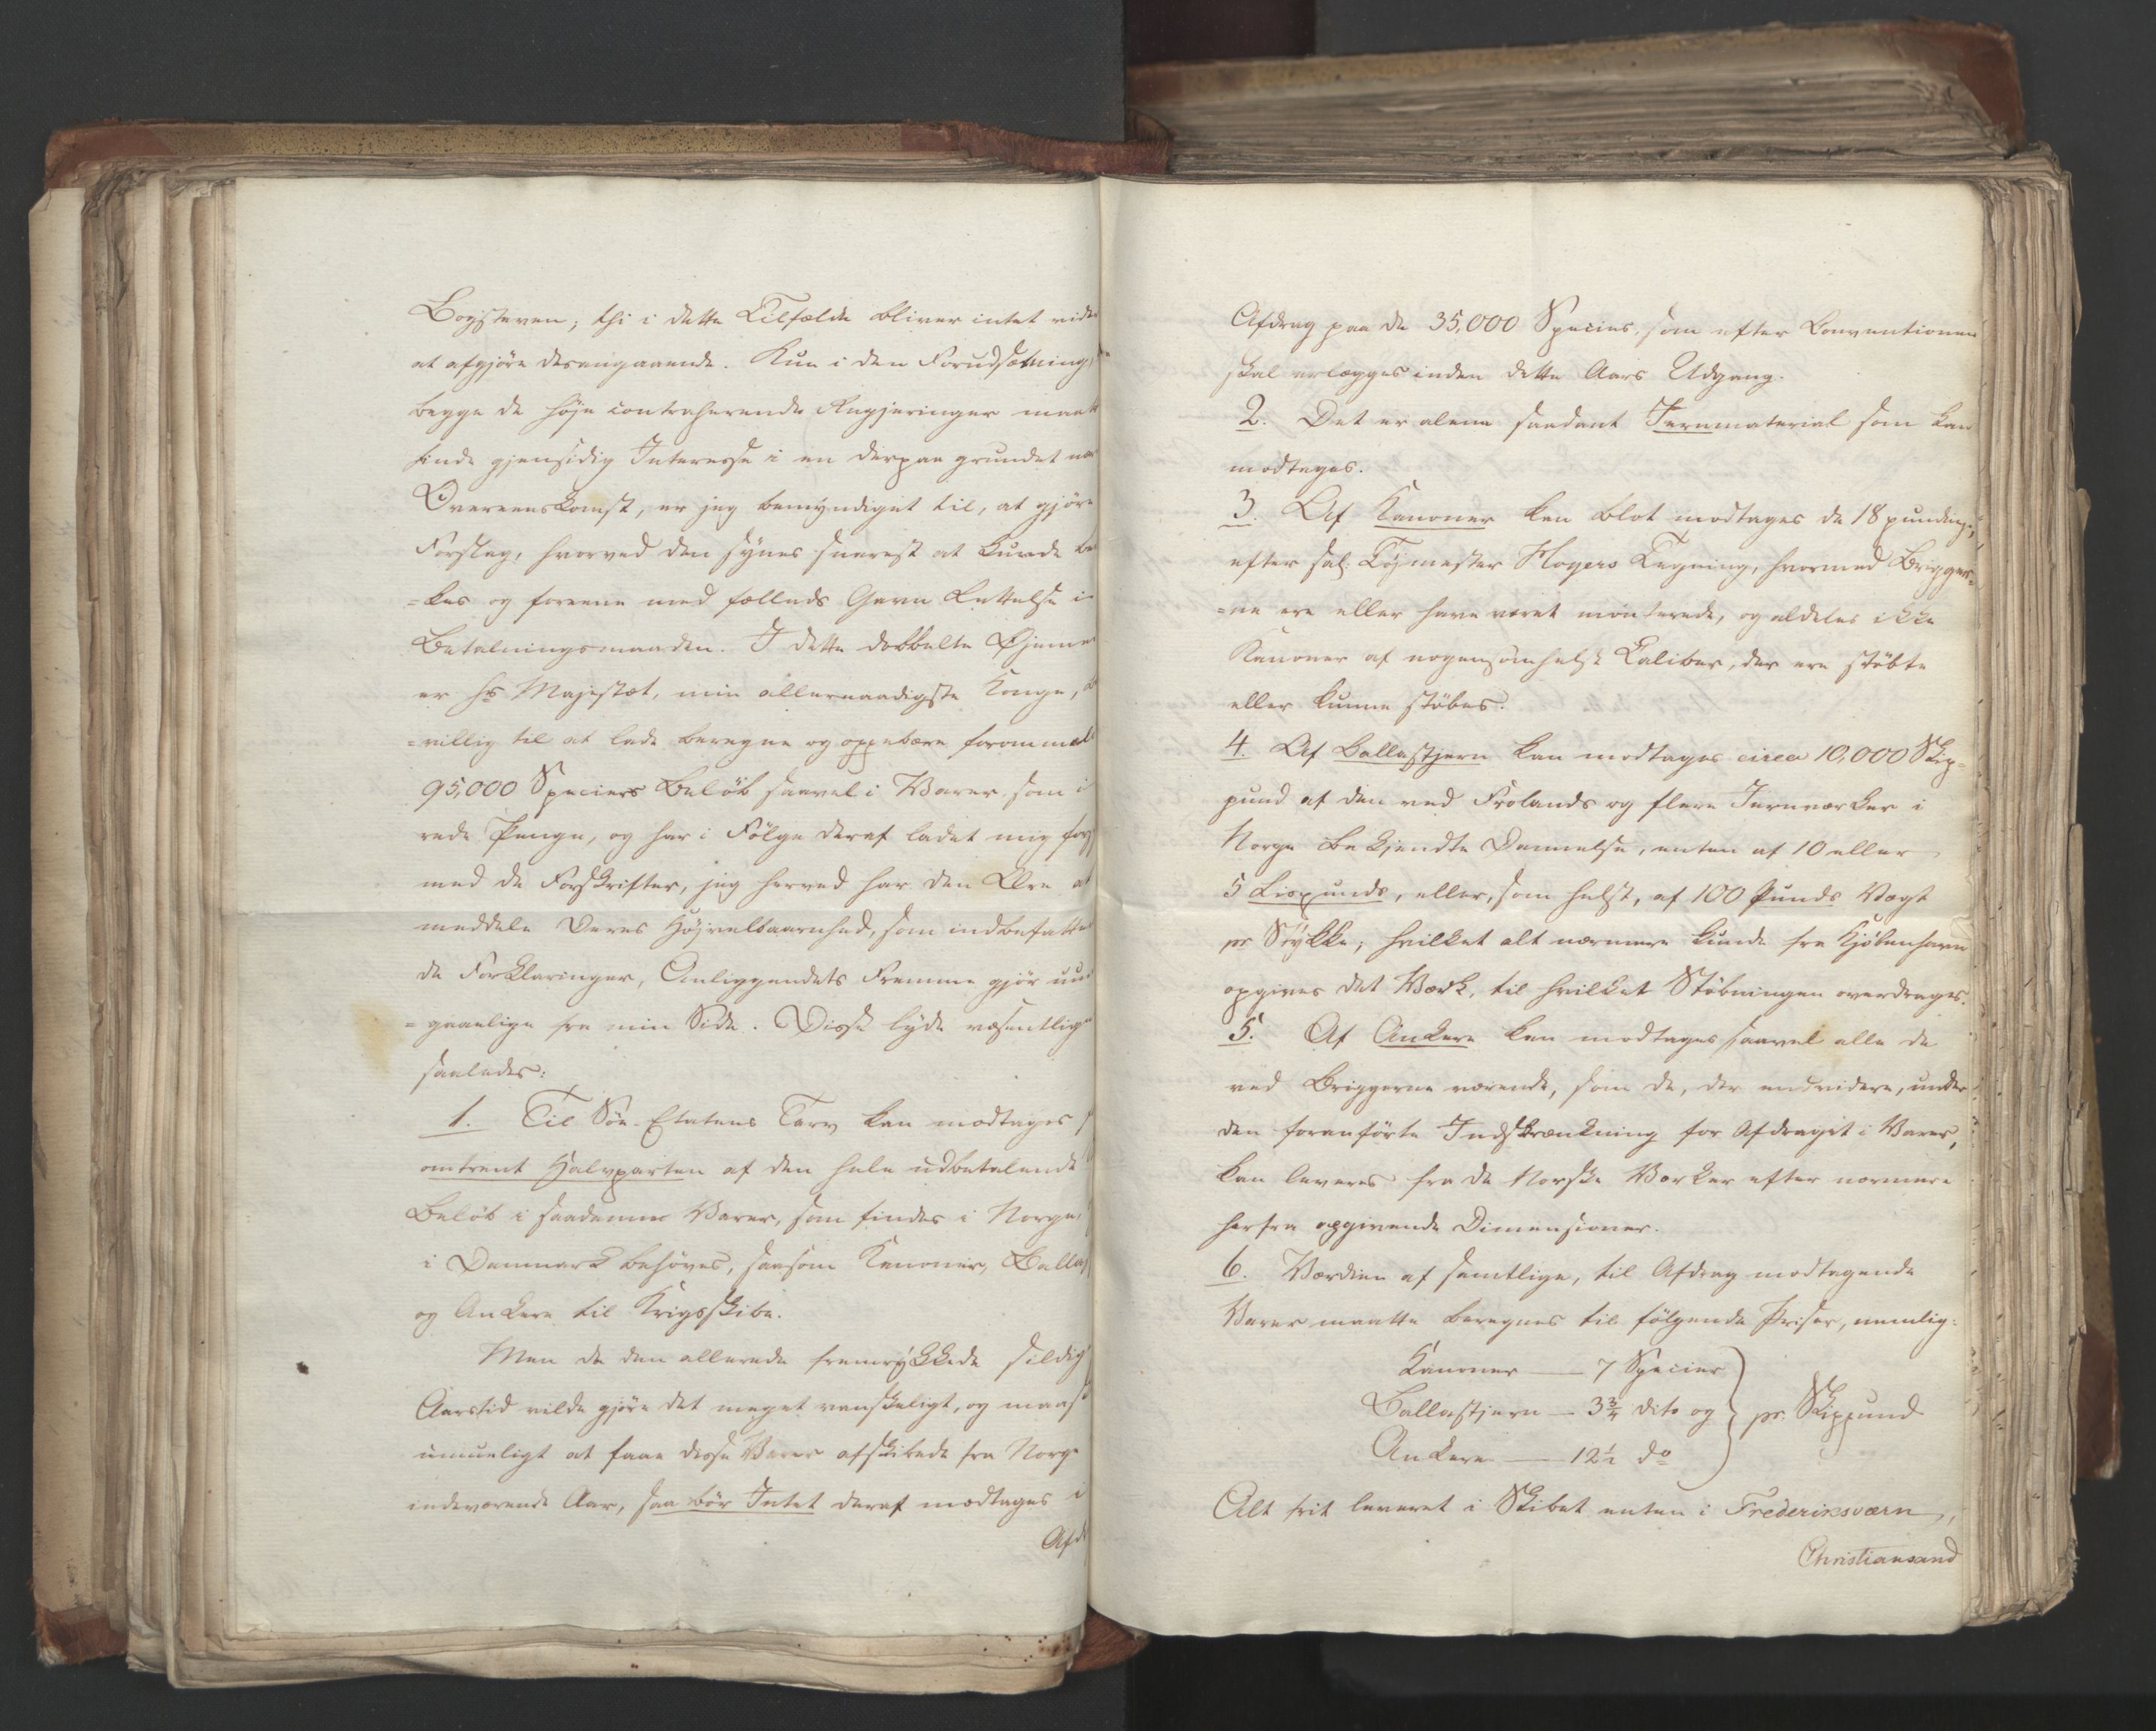 Bogstaven; thi i dette Tilfælde bliver intet vide
at afgjöre desangaaende. Kun i den Forudsætning,
begge de höje contraherende Regjeringer maatt
finde gjensidig Interesse i en derpaa grundet
Overeenskomst, er jeg bemyndiget til, at gjöre
Forslag, hvorved den synes snarest at kunde
=kes og forene med fælleds Gavn Lettelse i
Betalningsmaaden. I dette dobbelte Øjeme
er Hs Majestæt, min allernaadigste Konge,
=villig til at lade beregne og oppebære forommeld
95,000 Speciers Belöb saavel i Varer, som i
rede Penge, og har i Fölge deraf ladet mig for
med de Forskrifter, jeg herved har den Ære at
meddele Deres Højvelbaarnhed, som indbefatte
de Forklaringer, Anliggendets Fremme gjör und
=gaaelige fra min Side. Disse lyde væsentlige
saaledes:
1. Til Söe-Etatens Tarv kan modtages
omtrent Halvparten af den hele udbetalende
Belöb i saadanne Varer, som findes i Norge,
i Danmark behöves, saasom Kanoner, Ballas
og Ankere til Krigsskibe.
Men da den allerede fremrykkede sildig
Aarstid vilde gjöre det meget vanskeligt, og maas
umueligt at faae disse Varer afskibede fra Norge
indeværende Aar, saa bör Intet deraf modtages i
Afd
Afdrag paa de 35,000 Species, som efter Conventionen
skal erlægges inden dette Aars Udgang.
2. Det er alene saadant Jernmaterial som kan
modtages.
3. Af Kanoner kan blot modtages de 18 pundige,
efter sal: Töjmester Hoyers Tegning, hvormed Brigger=
=ne ere eller have været monterede, og aldeles ikke
Kanoner af nogensomhelst Caliber, der ere stöbte
eller kunne stöbes.
4. Af Ballastjern kan modtages circa 10,000 Skip=
pund af den ved Frolands og flere Jernværker i
Norge bekjendte Dannelse, enten af 10 eller
5 Lispunds, eller, som helst, af 100 Punds Vægt
pr Stykke; hvilket alt nærmere kunde fra Kjöbenhavn
opgives det Værk, til hvilket Stöbningen overdrages.
5. Af Ankere kan modtages saavel alle de
ved Briggerne værende, som de, der endvidere, under
den foranförte Indskrænkning for Afdraget i Varer,
kan leveres fra de Norske Værker efter nærmere
herfra opgivende Dimensioner.
6. Værdien af samtlige, til Afdrag modtagende
Varer maatte beregnes til fölgende Priser, nemlig:
Kanoner — 7 Species
Ballastjern — 3¾ dito og } pr. Skippund
Ankere — 12½ do
Alt frit leveret i Skibet enten i Frederiksværn,
Christiansand